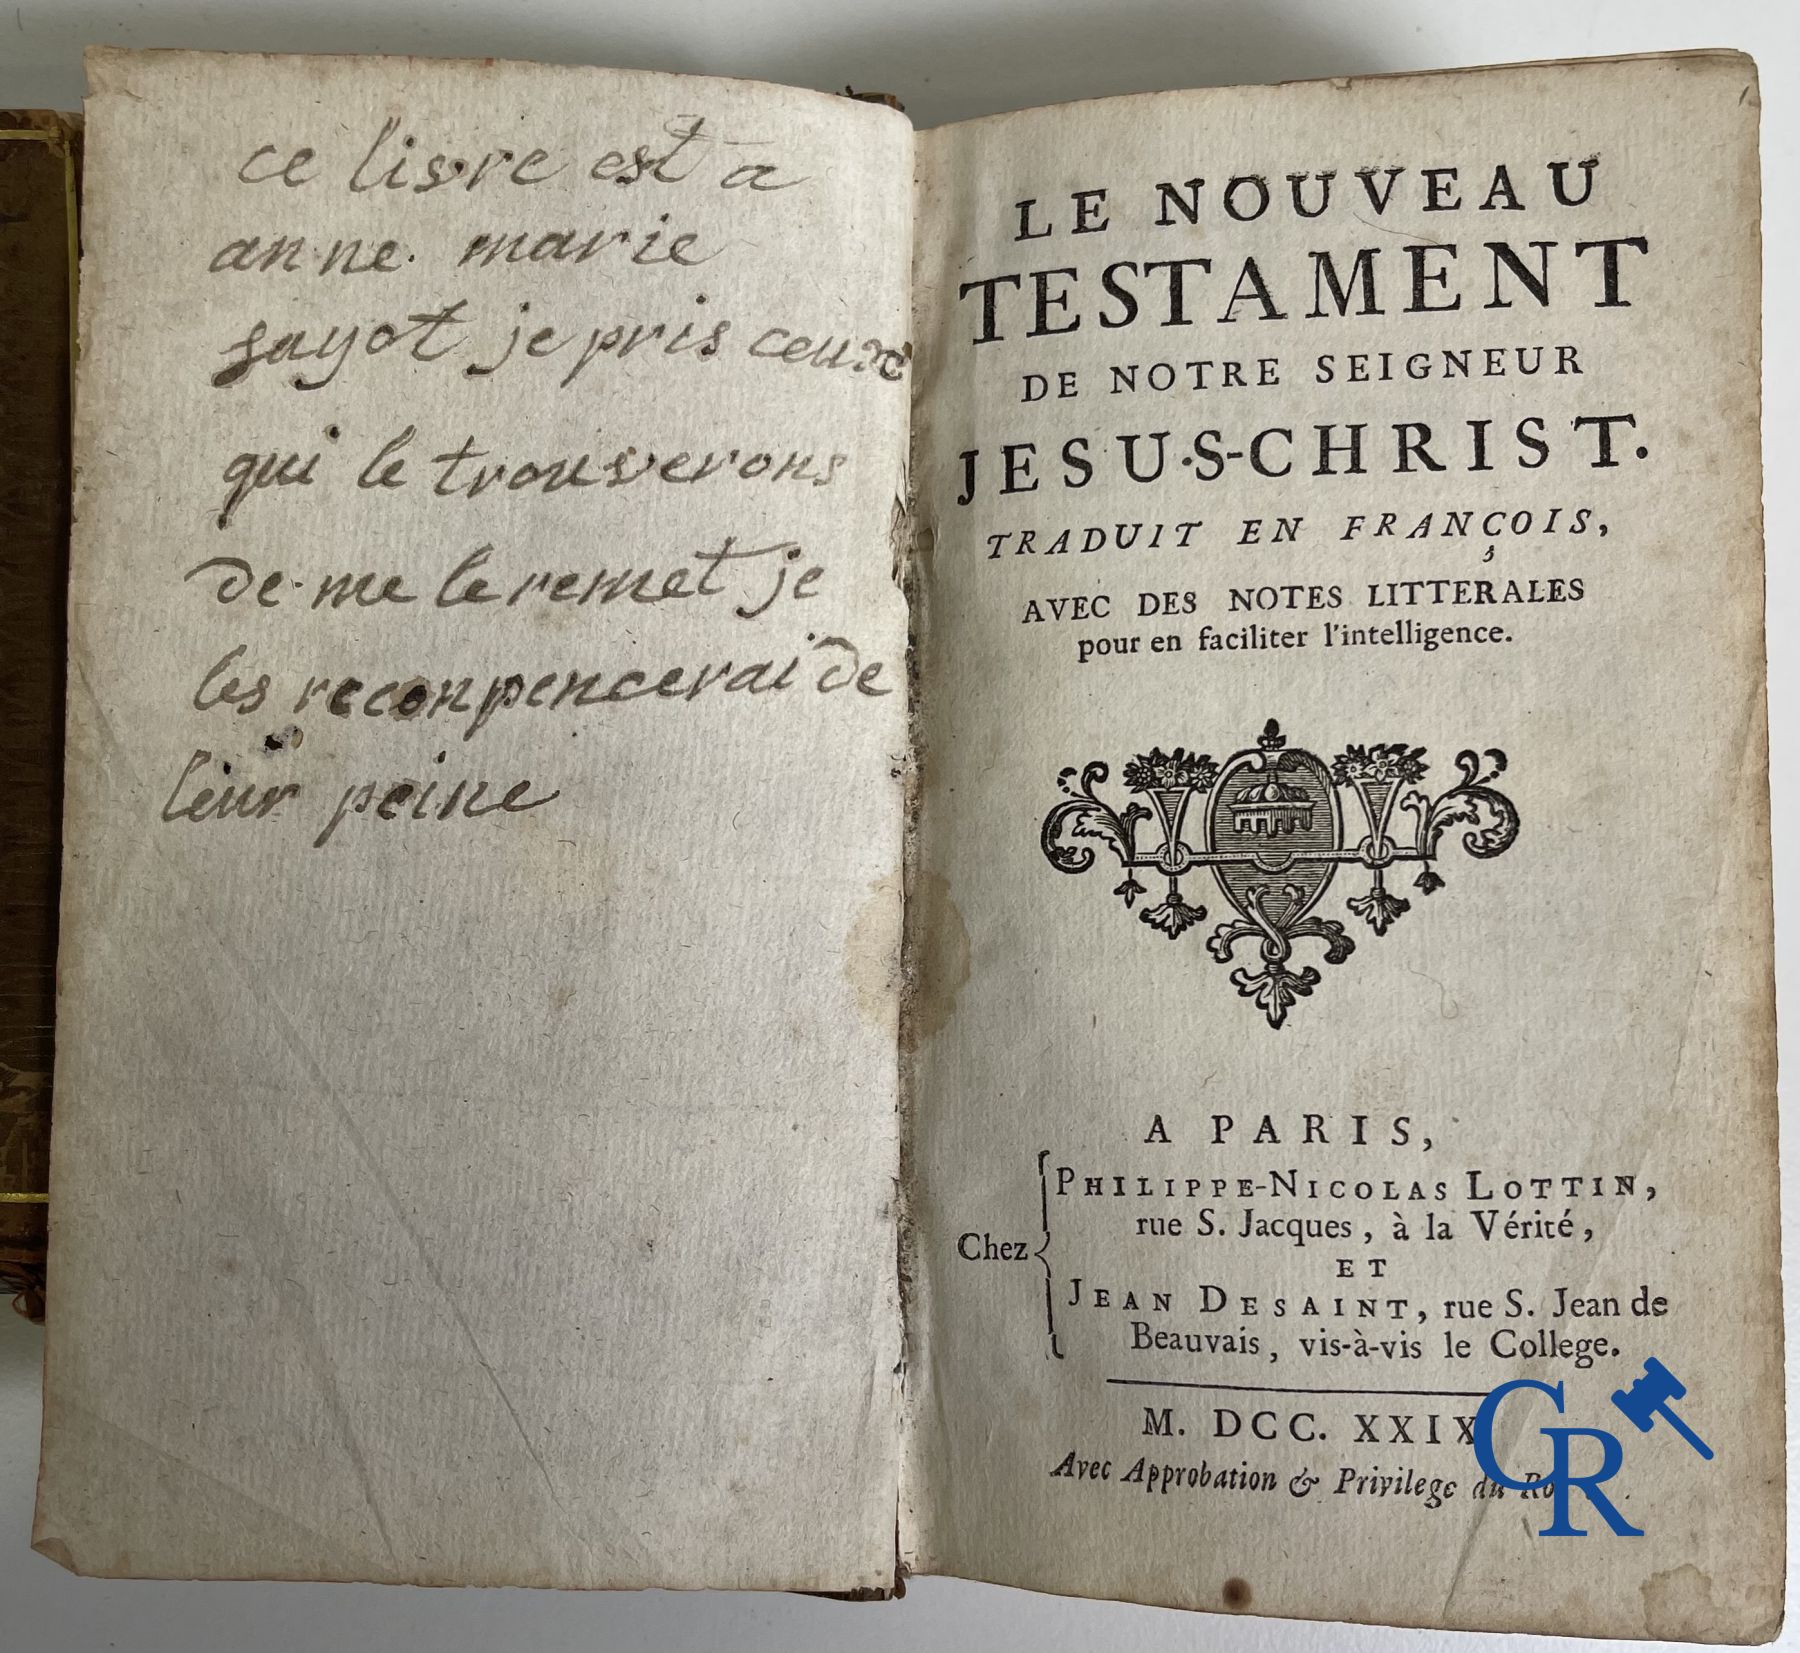 ce livre est a
anne. marie
sayot je pris ceux
qui le trouverons
de me le remet je
les reconpencerai de
leur peine
LE NOUVEAU
TESTAMENT
DE NOTRE SEIGNEUR
JESUS-CHRIST.
TRADUIT EN FRANÇOIS,
AVEC DES NOTES LITTERALES
pour en faciliter l'intelligence.
A PARIS,
PHILIPPE-NICOLAS LOTTIN,
rue S. Jacques, à la Vérité,
Chez
ET
JEAN DESAINT, rue S. Jean de
Beauvais, vis-à-vis le College.
M. DCC. XXIX
Avec Approbation & Privilege du Ro
CR